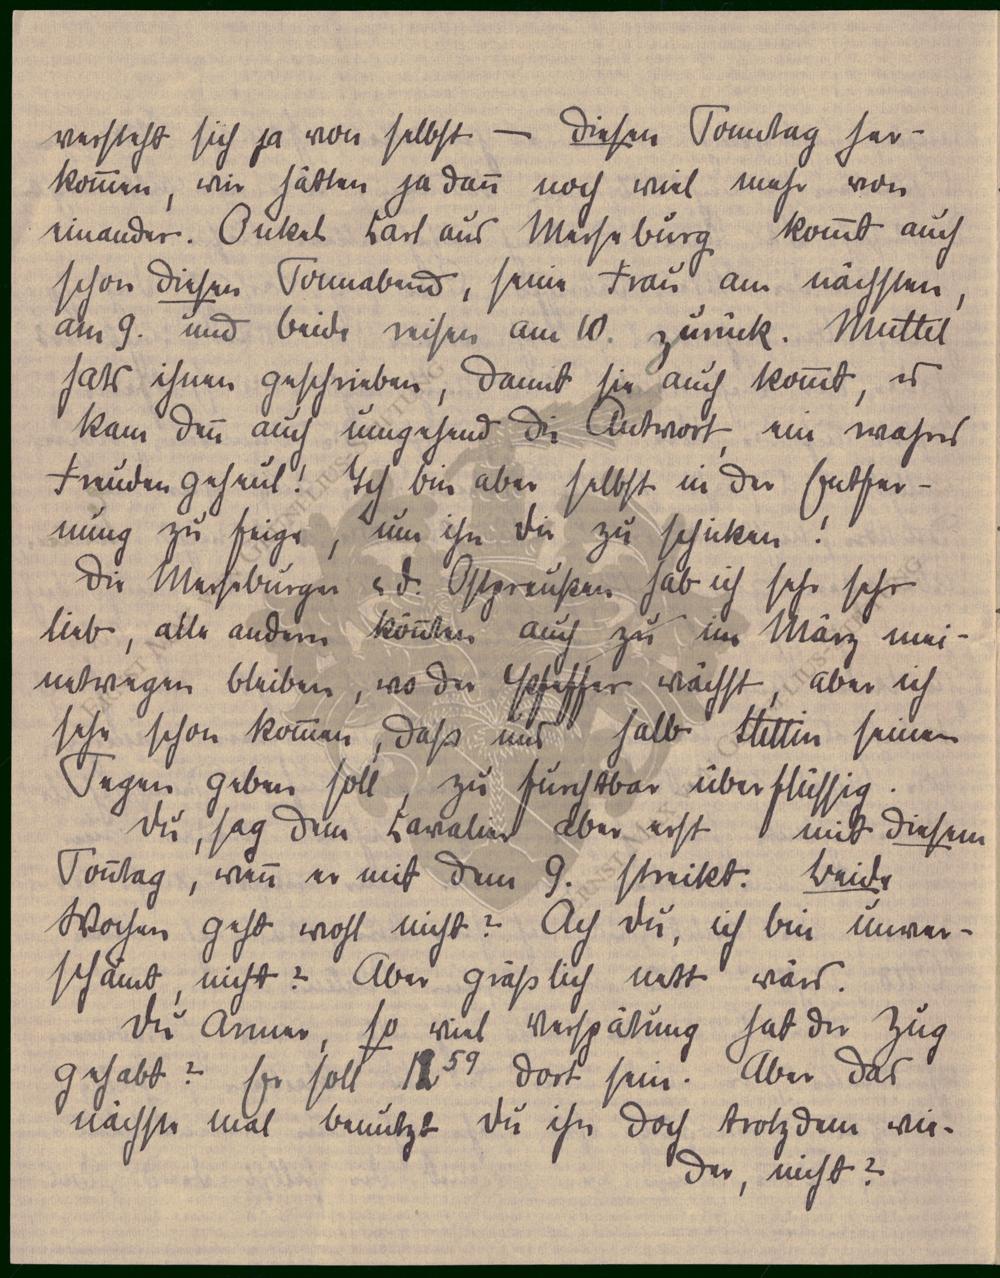 versteht sich ja von selbst — diesen Sonntag her-
kom̄en, wir hätten ja dan̄ noch viel mehr von
einander. Onkel Carl aus Merseburg kom̄t auch
schon diesen Sonnabend, seine Frau am nächsten,
am 9. und beide reisen am 10. zurück. Muttel
hats ihnen geschrieben, damit sie auch kom̄t, es
kam den̄ auch umgehend die Antwort, ein wahres
Freudengeheul! Ich bin aber selbst in der Entfer-
nung zu feige, um ihn dir zu schicken!
Die Merseburger u. d. Ostpreußen hab ich sehr sehr
lieb, alle andern kön̄ten auch zu im März mei-
netwegen bleiben, wo der Pfeffer wächst, aber ich
sehe schon kom̄en, daß uns halb Stettin seinen
Segen geben soll, zu furchtbar überflüssig.
Du, sag dem Cavalier aber erst mit diesem
Son̄tag, wen̄ er mit dem 9. streikt. Beide
Wochen geht wohl nicht? Ach du, ich bin unver-
schämt, nicht? Aber gräßlich nett wärs.
Du Armer, so viel Verspätung hat der Zug
gehabt? Er soll 12⁵⁹ dort sein. Aber das
nächste mal benutzt du ihn doch trotzdem wie-
der, nicht?